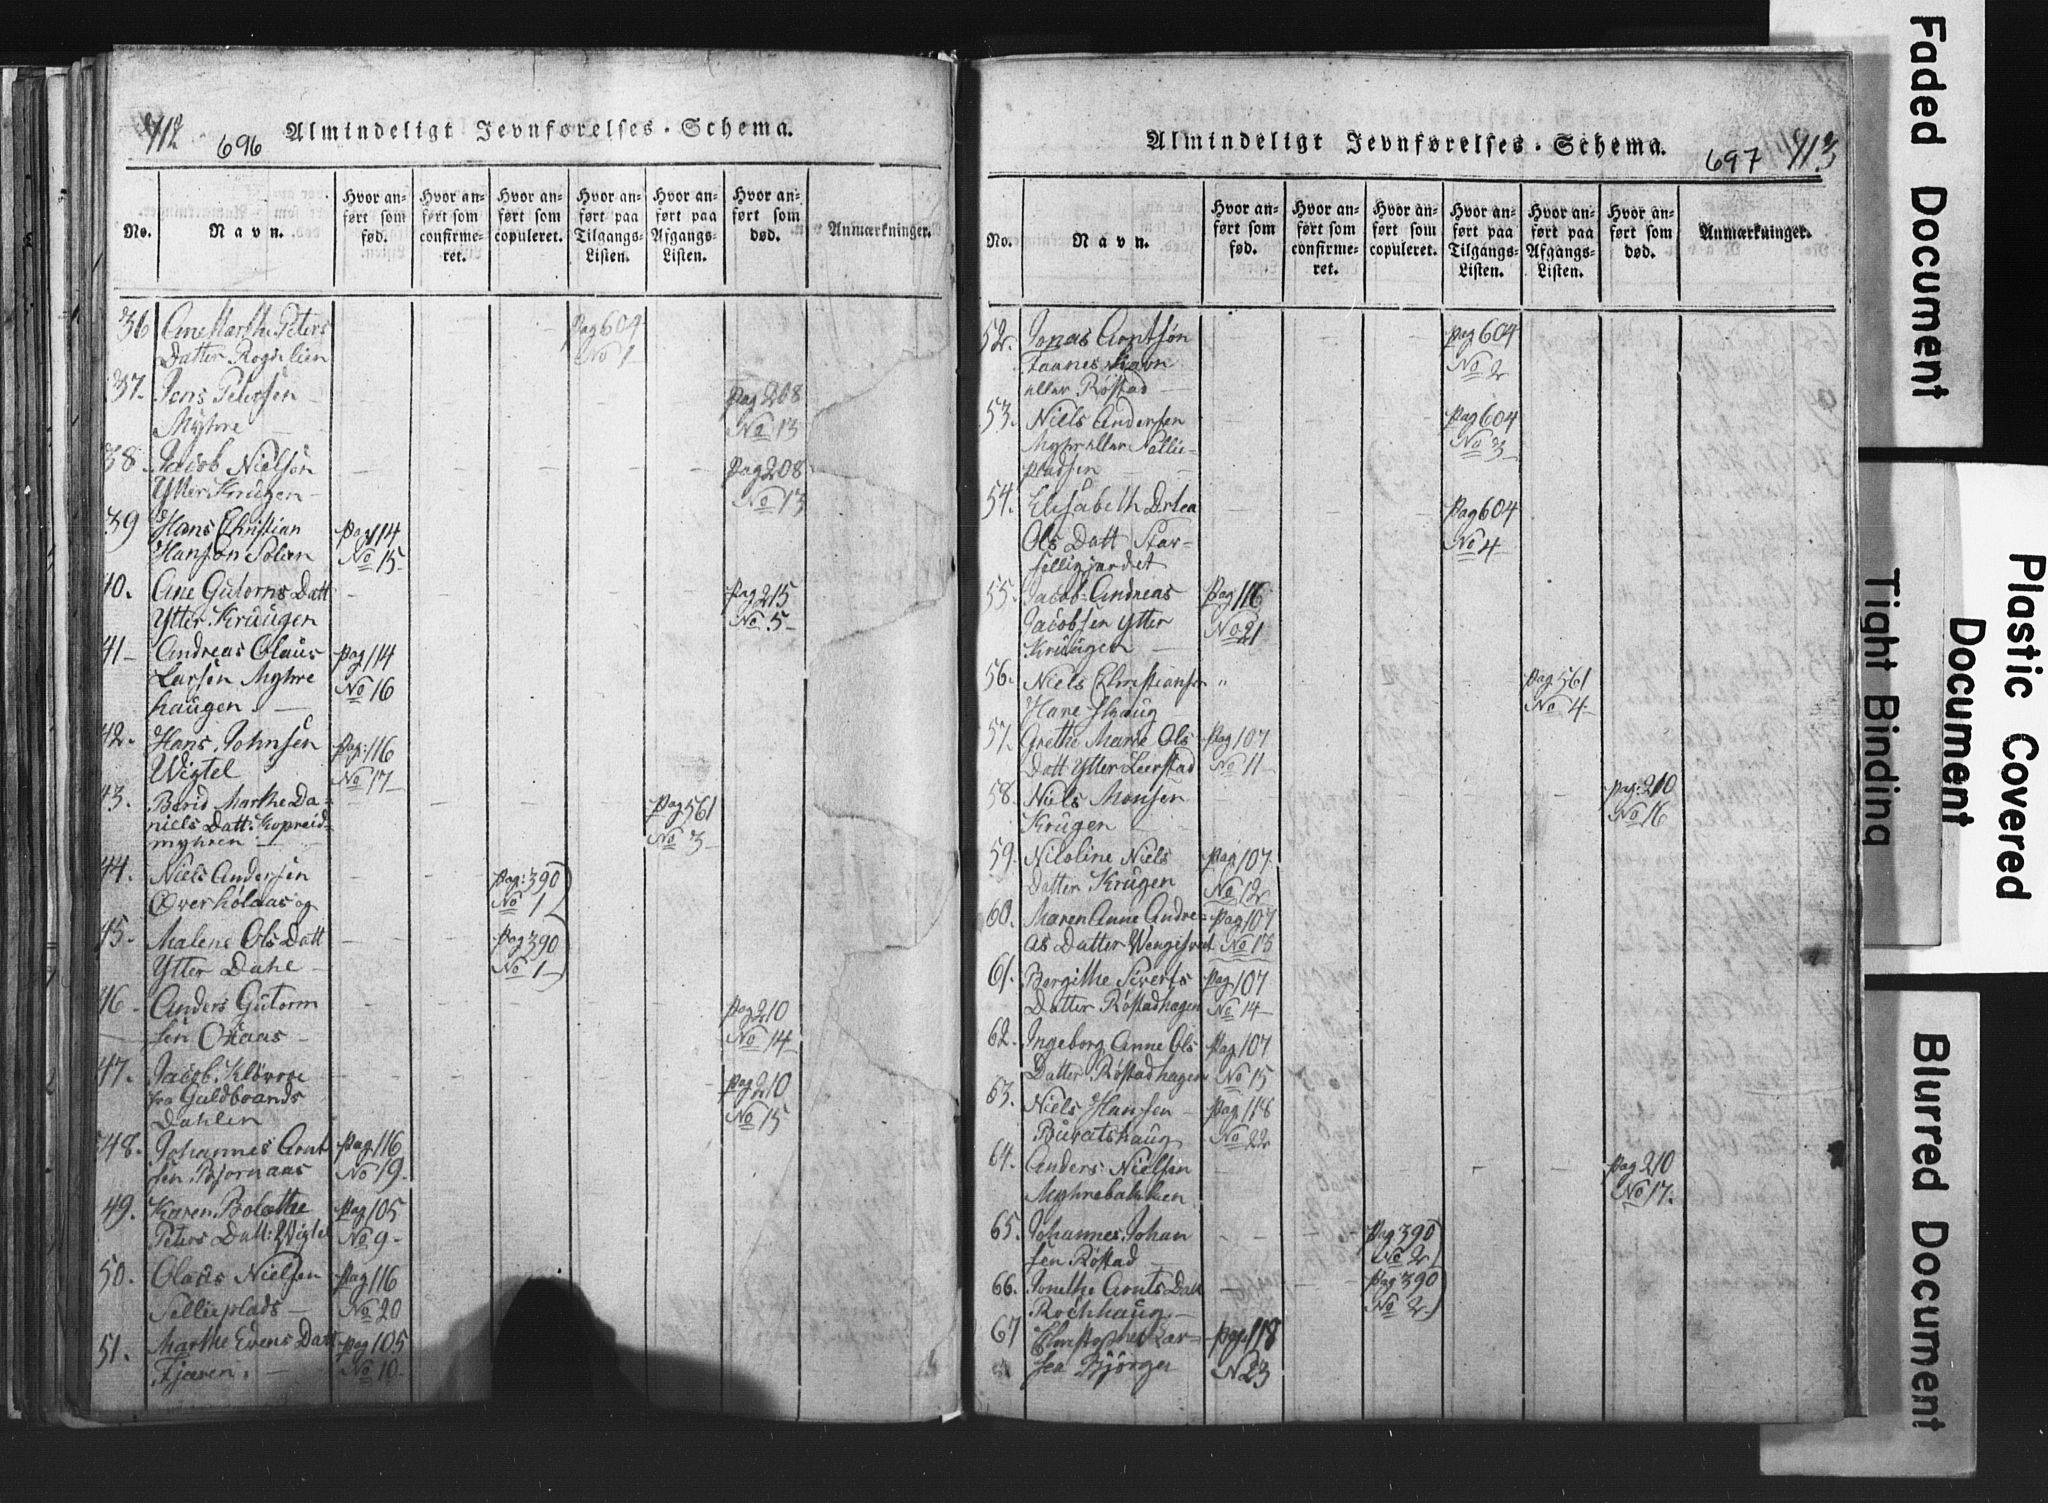 412 696 Almindeligt Jevnførelses-Schema.
No.
Navn.
Hvor an-
ført som
fød.
Hvor an-
ført som
confirme-
ret.
Hvor an-
ført som
copuleret.
Hvor an-
ført paa
Tilgangs-
Listen.
Hvor an-
ført paa
Afgangs-
Listen.
Hvor an-
ført som
død.
Anmærkninger.
36 Ane Marthe Peters pag 604
Datter Rogslien No 1
37. Jens Petersen pag 208
Myhre No 13
38. Jacob Nielsen pag 208
Ytter Krügen No 13
39 Hans Christian pag 114
Hansen No 15
40. Ane Gutorns Datt pag 215
Ytter Kruügen No 5
41 Andreas Olaus pag 114
Larsen Myhre No 16
haugen.
42. Hans Johnsen pag: 116
Wigtel No 17
43. Berid Marthe Da- pag 561
niels Datt: Kopreid- No 3
myhren
44. Niels Andersen pag: 390
Overholaas og No 1
45. Malene Ols Datt pag 390
Ytter Dahl No 1
46 Anders Gutorm pag 210
sen Aaas No 14
47. Jacob Klövrre pag 210
fra Guldbrands No 15
Dahlen
48. Johannes Arnt pag 116
sen Bjornaas No 19.
49. Karen Bolethe pag 105
Peters Datt: Wigtel No 9
50. Olaus Nielsen pag 116
Sellieplads No 20
51. Marthe Evens Datt pag 105
Fjæren. No 10
Almindeligt Jevnførelses-Schema. 697 413
No.
Navn.
Hvor an-
ført som
fød.
Hvor an-
ført som
confirme-
ret.
Hvor an-
ført som
copuleret.
Hvor an-
ført paa
Tilgangs-
Listen.
Hvor an-
ført paa
Afgangs-
Listen.
Hvor an-
ført som
død.
Anmærkninger.
52. Jonas Arntsøn pag 604
Faanes Ravn No 2
eller Røstad
53. Niels Andersen pag 604
Myhr eller Sellie- No 3
pladsen
54. Elisabeth Dortea pag 604
Ols Datt No 4
selligjerdet
55. Jacob Andreas pag 116
Jacobsen Ytter No 21
Kruügen
56. Niels Christiansen " pag 561
Hareshaug No 4
57. Grethe Marie Ols pag 107
Datt Ytter Leerstad No 11
58. Niels Monsen pag: 210
Krügen No 16
59. Nicoline Niels pag 107.
Datter Krügen No 12
60. Maren Anne Andre- pag 107
as Datter No 13
61. Bergithe Siverts pag 107
Datter Røstadhagen No 14
62. Ingeborg Anne Ols pag 107
Datter Røstadhagen No 15
63. Niels Hansen pag 118
Buratshaug No 22
64. Anders Nielsen pag 210
Myhrebakken No 17.
65. Johannes Johan pag 390
sen Røstad No 2
66. Jonethe Arnts Datt pag 390
Rochhaug. No 2
67 Christopher Lar- pag 118
sen Bjørgen N 23
Faded Document
Plastic Covered
Document
Tight Binding
Blurred Document